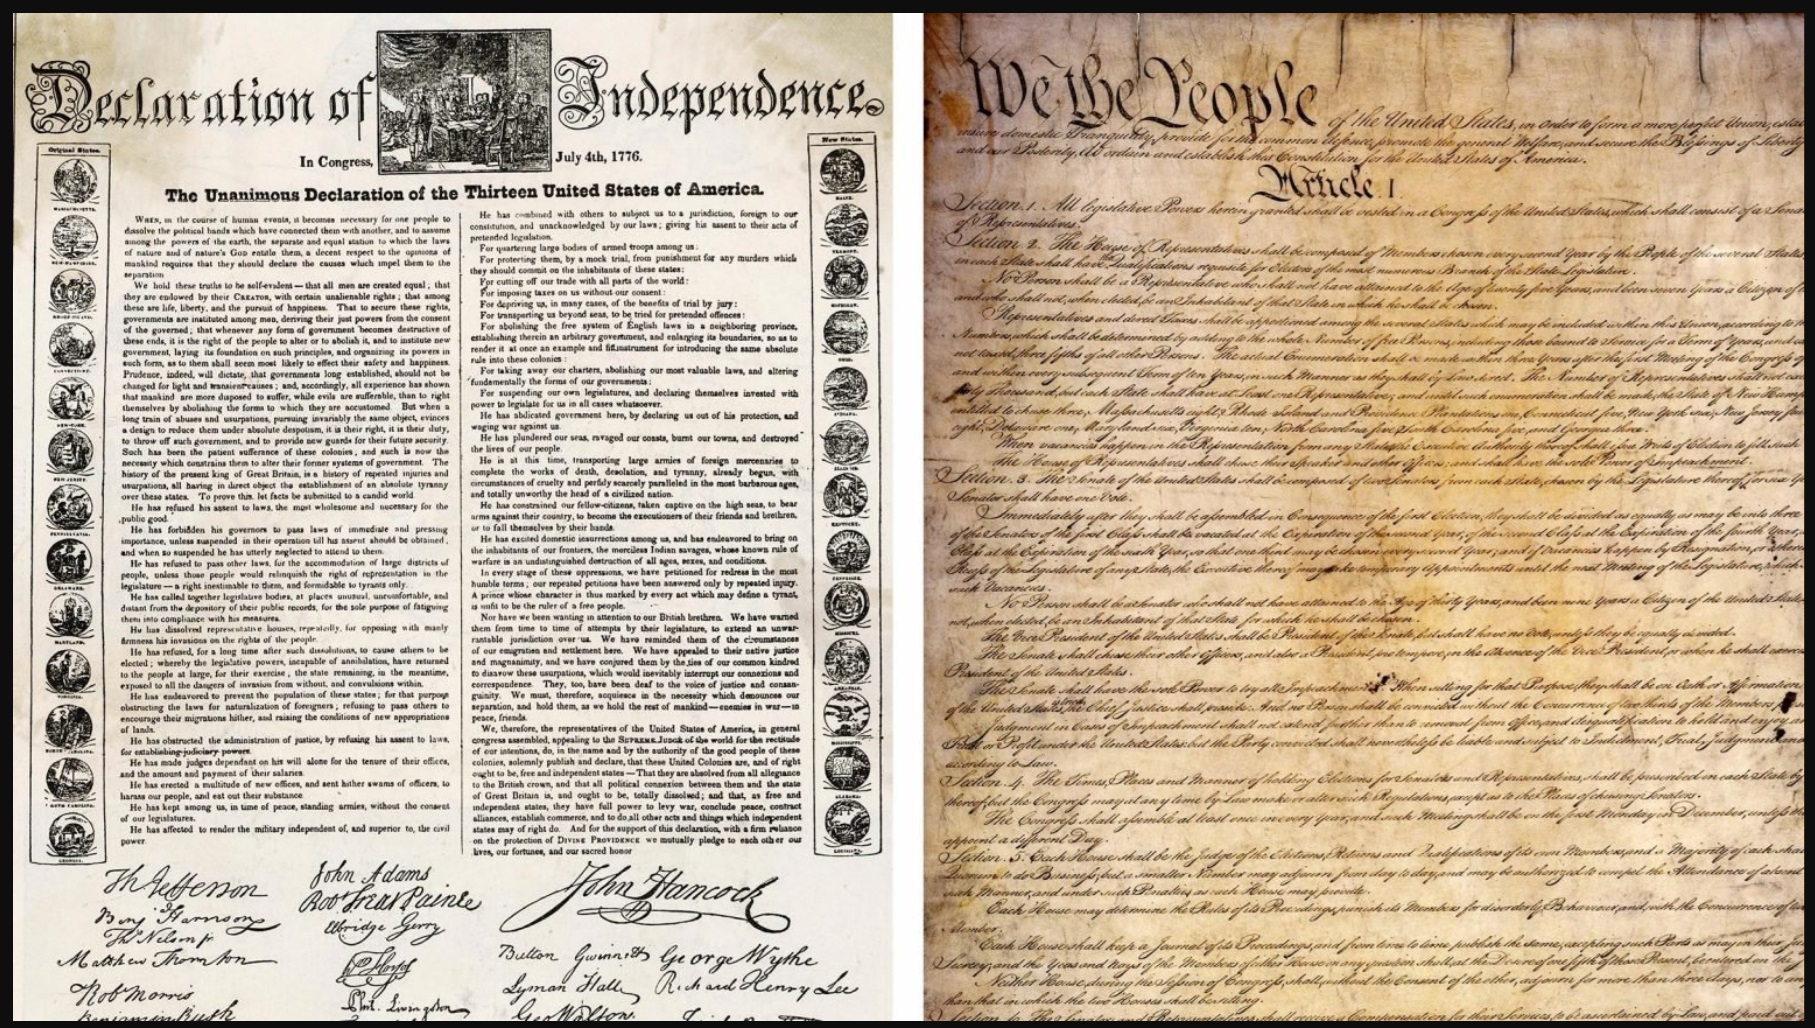 Declaration of Independence.
In Congress, July 4th, 1776.
The Unanimous Declaration of the Thirteen United States of America.
Original States.
WHEN, in the course of human events, it becomes necessary for one people to
dissolve the political bands which have connected them with another, and to assume
among the powers of the earth, the separate and equal station to which the laws
of nature and of nature's God entitle them, a decent respect to the opinions of
mankind requires that they should declare the causes which impel them to the
separation
We hold these truths to be self-evident—that all men are created equal; that
they are endowed by their CREATOR, with certain unalienable rights; that among
these are life, liberty, and the pursuit of happiness. That to secure these rights,
governments are instituted among men, deriving their just powers from the consent
of the governed; that whenever any form of government becomes destructive of
these ends, it is the right of the people to alter or to abolish it, and to institute new
government, laying its foundation on such principles, and organizing its powers in
such form, as to them shall seem most likely to effect their safety and happiness.
Prudence, indeed, will dictate, that governments long established, should not be
changed for light and transient causes; and, accordingly, all experience has shown
that mankind are more disposed to suffer, while evils are sufferable, than to right
themselves by abolishing the forms to which they are accustomed. But when a
long train of abuses and usurpations, pursuing invariably the same object, evinces
a design to reduce them under absolute despotism, it is their right, it is their duty,
to throw off such government, and to provide new guards for their future security.
Such has been the patient sufferance of these colonies, and such is now the
necessity which constrains them to alter their former systems of government. The
history of the present king of Great Britain, is a history of repeated injuries and
usurpations, all having in direct object the establishment of an absolute tyranny
over these states. To prove this, let facts be submitted to a candid world.
He has refused his assent to laws, the most wholesome and necessary for the
public good.
He has forbidden his governors to pass laws of immediate and pressing
importance, unless suspended in their operation till his assent should be obtained,
and when so suspended he has utterly neglected to attend to them.
He has refused to pass other laws, for the accommodation of large districts of
people, unless those people would relinquish the right of representation in the
legislature—a right inestimable to them, and formidable to tyrants only.
He has called together legislative bodies, at places unusual, uncomfortable, and
distant from the depository of their public records, for the sole purpose of fatiguing
them into compliance with his measures.
He has dissolved representative houses, repeatedly, for opposing with manly
firmness his invasions on the rights of the people.
He has refused, for a long time after such dissolutions, to cause others to be
elected; whereby the legislative powers, incapable of annihilation, have returned
to the people at large, for their exercise; the state remaining, in the meantime,
exposed to all the dangers of invasion from without, and convulsions within.
He has endeavored to prevent the population of these states; for that purpose
obstructing the laws for naturalization of foreigners; refusing to pass others to
encourage their migrations hither, and raising the conditions of new appropriations
of lands.
He has obstructed the administration of justice, by refusing his assent to laws,
for establishing judiciary powers.
He has made judges dependant on his will alone for the tenure of their offices,
and the amount and payment of their salaries.
He has erected a multitude of new offices, and sent hither swarms of officers, to
harass our people, and eat out their substance.
He has kept among us, in time of peace, standing armies, without the consent
of our legislatures.
He has affected to render the military independent of, and superior to, the civil
power.
He has combined with others to subject us to a jurisdiction, foreign to our
constitution, and unacknowledged by our laws; giving his assent to their acts of
pretended legislation.
For quartering large bodies of armed troops among us:
For protecting them, by a mock trial, from punishment for any murders which
they should commit on the inhabitants of these states:
For cutting off our trade with all parts of the world:
For imposing taxes on us without our consent:
For depriving us, in many cases, of the benefits of trial by jury:
For transporting us beyond seas, to be tried for pretended offences:
For abolishing the free system of English laws in a neighboring province,
establishing therein an arbitrary government, and enlarging its boundaries, so as to
render it at once an example and fit instrument for introducing the same absolute
rule into these colonies:
For taking away our charters, abolishing our most valuable laws, and altering
fundamentally the forms of our governments:
For suspending our own legislatures, and declaring themselves invested with
power to legislate for us in all cases whatsoever.
He has abdicated government here, by declaring us out of his protection, and
waging war against us.
He has plundered our seas, ravaged our coasts, burnt our towns, and destroyed
the lives of our people.
He is at this time, transporting large armies of foreign mercenaries to
complete the works of death, desolation, and tyranny, already begun, with
circumstances of cruelty and perfidy scarcely paralleled in the most barbarous ages,
and totally unworthy the head of a civilized nation.
He has constrained our fellow-citizens, taken captive on the high seas, to bear
arms against their country, to become the executioners of their friends and brethren,
or to fall themselves by their hands.
He has excited domestic insurrections among us, and has endeavored to bring on
the inhabitants of our frontiers, the merciless Indian savages, whose known rule of
warfare is an undistinguished destruction of all ages, sexes, and conditions.
In every stage of these oppressions, we have petitioned for redress in the most
humble terms; our repeated petitions have been answered only by repeated injury.
A prince whose character is thus marked by every act which may define a tyrant,
is unfit to be the ruler of a free people.
Nor have we been wanting in attention to our British brethren. We have warned
them from time to time of attempts by their legislature, to extend an unwar-
rantable jurisdiction over us. We have reminded them of the circumstances
of our emigration and settlement here. We have appealed to their native justice
and magnanimity, and we have conjured them by the ties of our common kindred
to disavow these usurpations, which would inevitably interrupt our connexions and
correspondence. They, too, have been deaf to the voice of justice and consan-
guinity. We must, therefore, acquiesce in the necessity which denounces our
separation, and hold them, as we hold the rest of mankind—enemies in war—in
peace, friends.
We, therefore, the representatives of the United States of America, in general
congress assembled, appealing to the SUPREME JUDGE of the world for the rectitude
of our intentions, do, in the name and by the authority of the good people of these
colonies, solemnly publish and declare, that these United Colonies are, and of right
ought to be, free and independent states—That they are absolved from all allegiance
to the British crown, and that all political connexion between them and the state
of Great Britain is, and ought to be, totally dissolved; and that, as free and
independent states, they have full power to levy war, conclude peace, contract
alliances, establish commerce, and to do all other acts and things which independent
states may of right do. And for the support of this declaration, with a firm reliance
on the protection of DIVINE PROVIDENCE we mutually pledge to each other our
lives, our fortunes, and our sacred honor
New States.
Th Jefferson
John Adams
John Hancock
Benj Harrison
Robt Treat Paine
Ths Nelson jr
Elbridge Gerry
Matthew Thornton
Button Gwinnett George Wythe
Robt Morris
Lyman Hall Richard Henry Lee
Benjamin Rush
Phil. Livingston
Geo Walton.
We the People of the United States, in Order to form a more perfect Union,
insure domestic Tranquility, provide for the common defence, promote the general Welfare, and secure the Blessings of Liberty
and our Posterity, do ordain and establish this Constitution for the United States of America.
Article. I.
Section. 1. All legislative Powers herein granted shall be vested in a Congress of the United States, which shall consist of a
of Representatives.
Section. 2. The House of Representatives shall be composed of Members chosen every second Year by the People of the several States
in each State shall have Qualifications requisite for Electors of the most numerous Branch of the State Legislature.
No Person shall be a Representative who shall not have attained to the Age of twenty five Years, and been seven Years a Citizen of
and who shall not, when elected, be an Inhabitant of that State in which he shall be chosen.
Representatives and direct Taxes shall be apportioned among the several States which may be included within this Union, according to
Numbers, which shall be determined by adding to the whole Number of free Persons, including those bound to Service for a Term of Years, and
not taxed, three fifths of all other Persons. The actual Enumeration shall be made within three Years after the first Meeting of the Congress
and within every subsequent Term of ten Years, in such Manner as they shall by Law direct. The Number of Representatives shall not
thirty Thousand, but each State shall have at Least one Representative; and until such enumeration shall be made, the State of New
entitled to chuse three, Massachusetts eight, Rhode Island and Providence Plantations one, Connecticut five, New York six, New Jersey
eight, Delaware one, Maryland six, Virginia ten, North Carolina five, South Carolina five, and Georgia three.
When vacancies happen in the Representation from any State, the Executive Authority thereof shall issue Writs of Election to fill such
The House of Representatives shall chuse their Speaker and other Officers; and shall have the sole Power of Impeachment.
Section. 3. The Senate of the United States shall be composed of two Senators from each State, chosen by the Legislature thereof, for six
Senator shall have one Vote.
Immediately after they shall be assembled in Consequence of the first Election, they shall be divided as equally as may be into three
of the Senators of the first Class shall be vacated at the Expiration of the second Year, of the second Class at the Expiration of the fourth Year,
Class at the Expiration of the sixth Year, so that one third may be chosen every second Year; and if Vacancies happen by Resignation, or
Recess of the Legislature of any State, the Executive thereof may make temporary Appointments until the next Meeting of the Legislature, which
such Vacancies.
No Person shall be a Senator who shall not have attained to the Age of thirty Years, and been nine Years a Citizen of the United States
not, when elected, be an Inhabitant of that State for which he shall be chosen.
The Vice President of the United States shall be President of the Senate, but shall have no Vote, unless they be equally divided.
The Senate shall chuse their other Officers, and also a President pro tempore, in the Absence of the Vice President, or when he shall
President of the United States.
The Senate shall have the sole Power to try all Impeachments. When sitting for that Purpose, they shall be on Oath or Affirmation
of the United States, the Chief Justice shall preside: And no Person shall be convicted without the Concurrence of two thirds of the Members
Judgment in Cases of Impeachment shall not extend further than to removal from Office, and disqualification to hold and enjoy
Trust or Profit under the United States: but the Party convicted shall nevertheless be liable and subject to Indictment, Trial, Judgment and
according to Law.
Section. 4. The Times, Places and Manner of holding Elections for Senators and Representatives, shall be prescribed in each State by
thereof; but the Congress may at any time by Law make or alter such Regulations, except as to the Places of chusing Senators.
The Congress shall assemble at least once in every Year, and such Meeting shall be on the first Monday in December, unless
appoint a different Day.
Section. 5. Each House shall be the Judge of the Elections, Returns and Qualifications of its own Members, and a Majority of each
Quorum to do Business; but a smaller Number may adjourn from day to day, and may be authorized to compel the Attendance of absent
such Manner, and under such Penalties as each House may provide.
Each House may determine the Rules of its Proceedings, punish its Members for disorderly Behaviour, and, with the Concurrence of
Member.
Each House shall keep a Journal of its Proceedings, and from time to time publish the same, excepting such Parts as may in their
Secrecy; and the Yeas and Nays of the Members of either House on any question shall, at the Desire of one fifth of those Present, be entered on the
Neither House, during the Session of Congress, shall, without the Consent of the other, adjourn for more than three days, nor to
than that in which the two Houses shall be sitting.